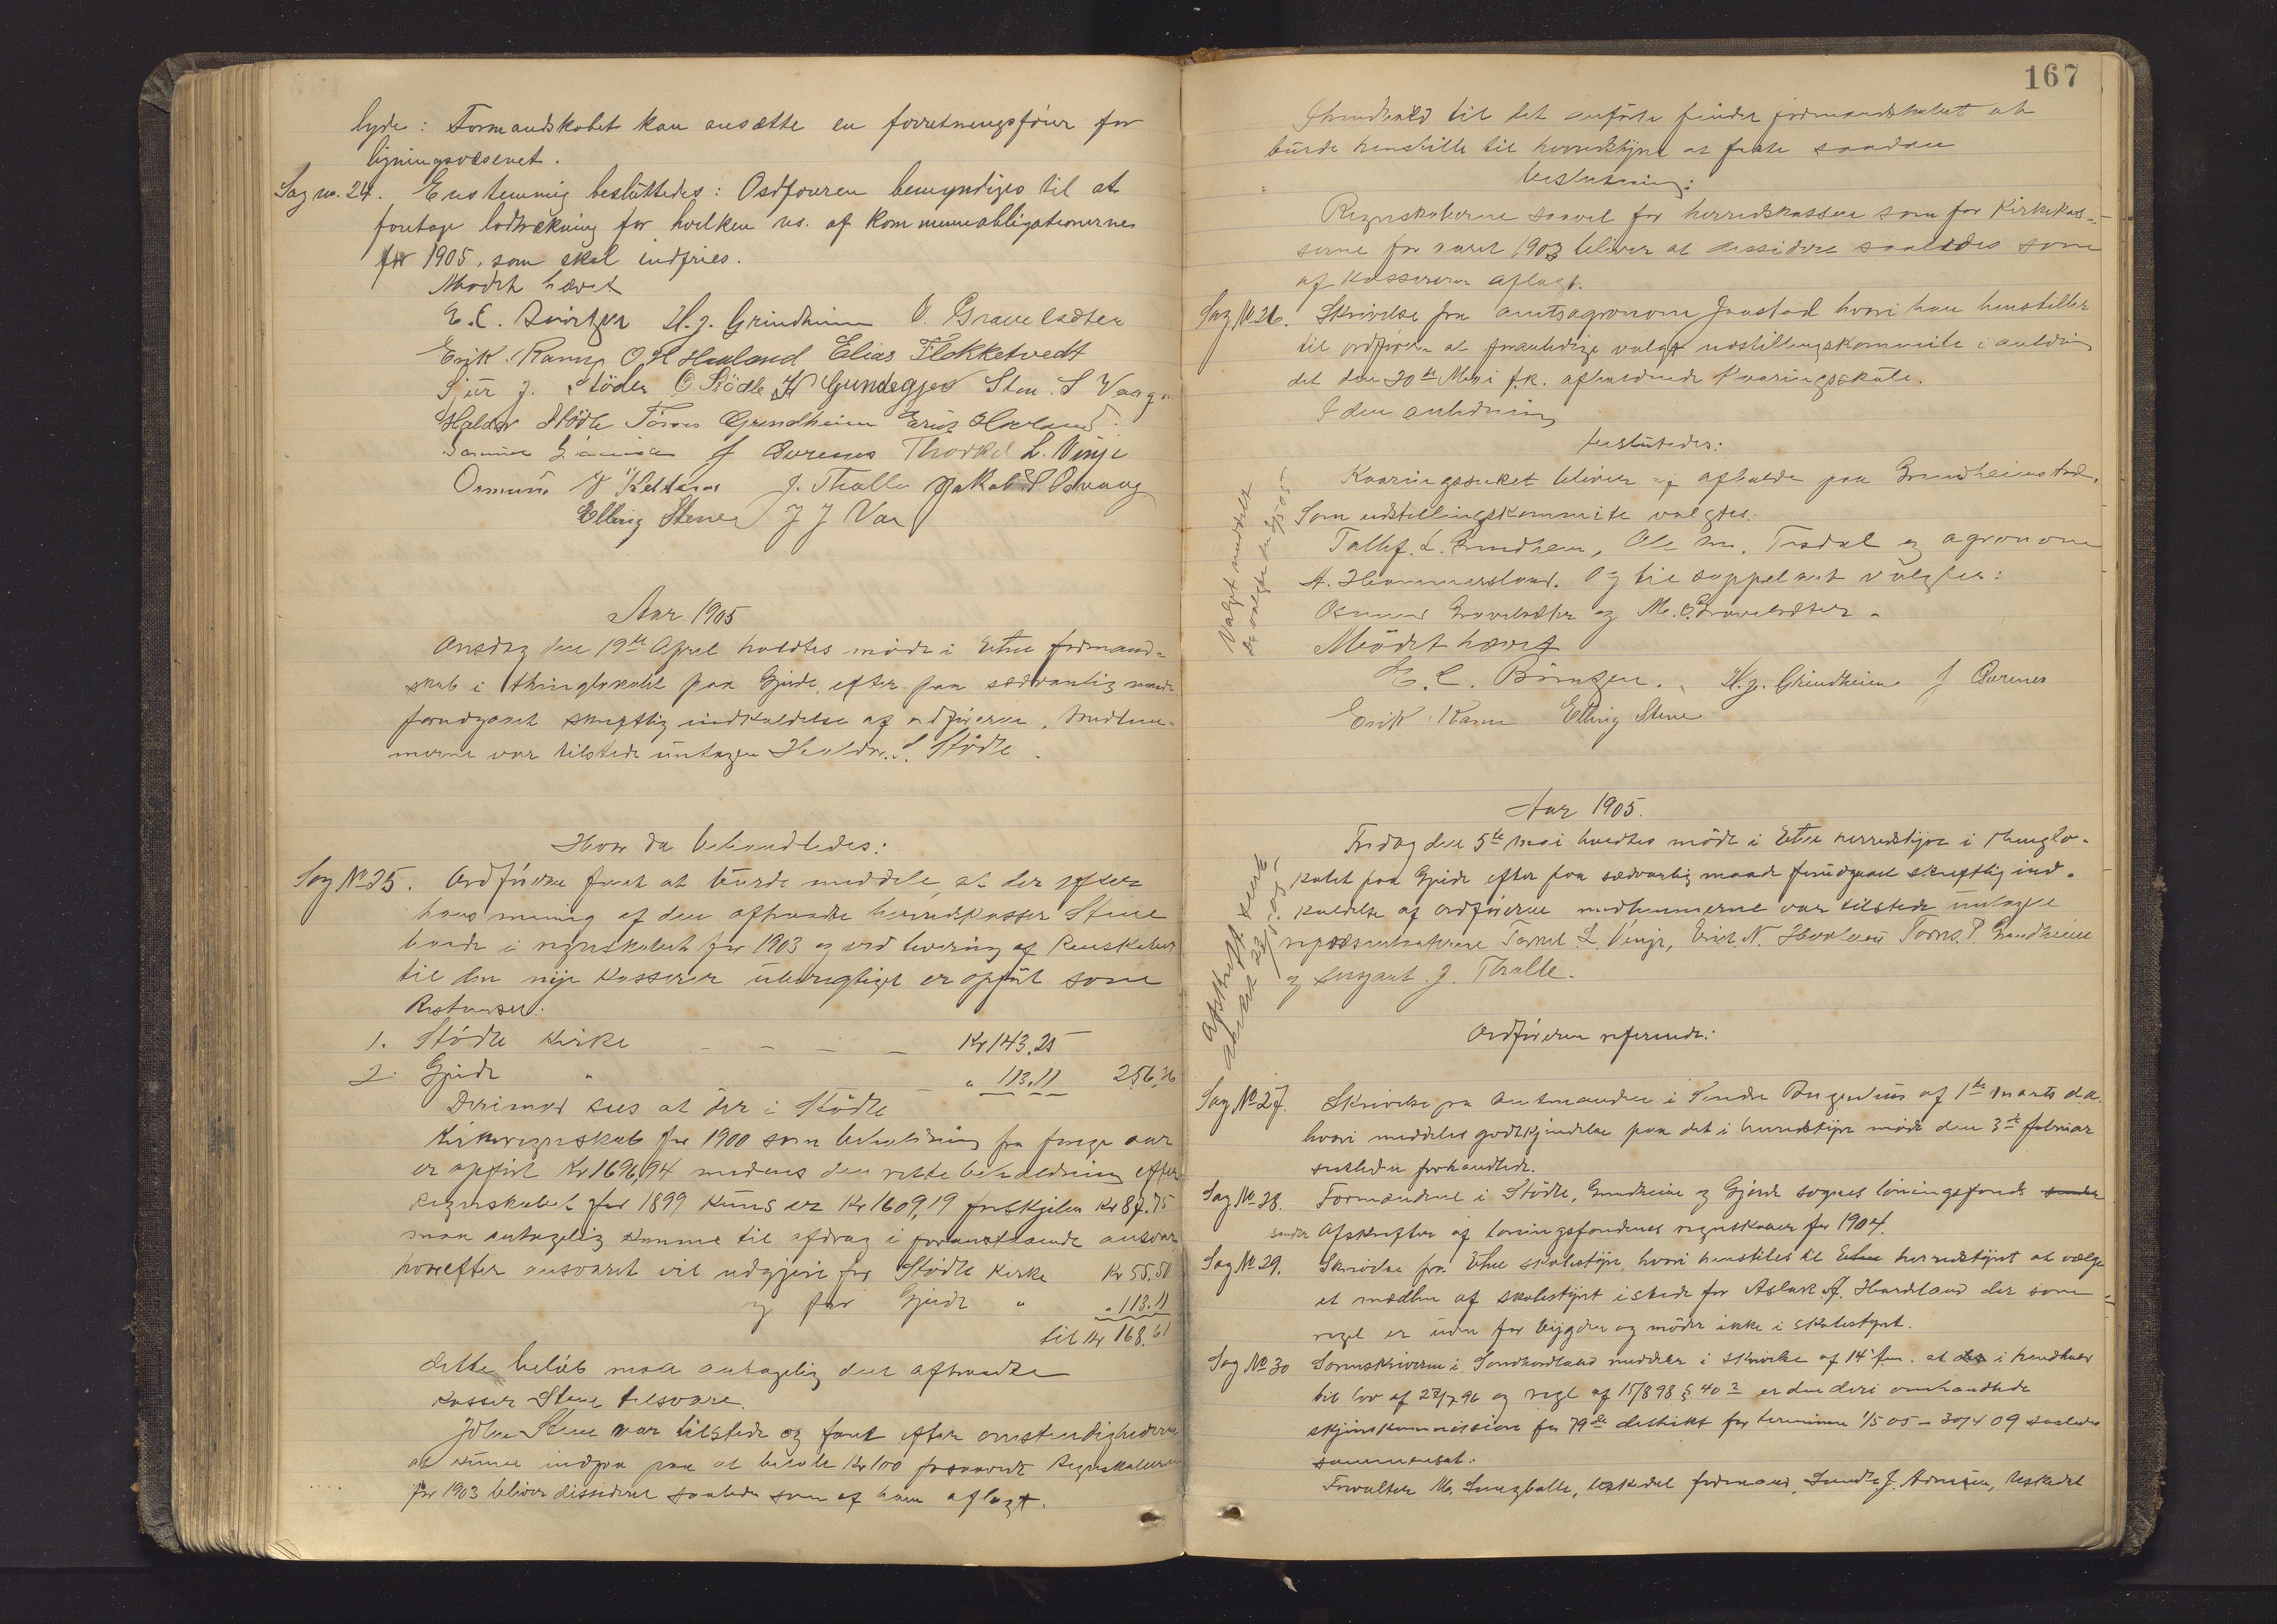 lyde: Formandskabet kan ansætte en forretningsfører for
ligningsvæsenet.
Sag no. 24. Enstemmig besluttedes: Ordføreren bemyndiges til at
foretage lodtrækning for hvilken no. af kommuneobligationernes
for 1905, som skal indfries.
Mødet hævet
E. C. H. J. Grindheim O. Gravelsæter
Erik Ramn O. H. Håland Elias Flokketvedt
Sjur J. Stödle O Stödle Sten. S Vaag
Haldor Stödle Törres Grindheim Eriz Haaland
J Qvernes Thorkel L. Vinje
Osmund J. Tralle Jakob
Elling Stene J J Var
Aar 1905
Onsdag den 19de April holdtes møde i Etne formand-
skab i thinglokalet paa Gjerde, efter paa sædvanlig maade
forudgaaet skriftlig indkaldelse af ordføreren. Medlem-
merne var tilstede untagen Haldor S. Stödle.
Hvor da behandledes:
Sag No 25. Ordføreren fandt at burde meddele, at der efter
hans mening af den aftraadte herredskasser Stene
baade i regnskabet for 1903 og ved levering af Renskaber
til den nye kasserer uberegtiget er opført som
Restanser:
1. Stödle Kirke - - - - Kr 143.25
2. Gjerde " " 113.11 256,36
Derimod sees at der i Stödle
Kirkeregnskab for 1900 som beholdning fra forige aar
er opført Kr 1696,94 medens den rette beholdning efter
regnskabet for 1899 kuns er Kr 1609,19 forskjelen Kr 87.75
maa antagelig komme til afdrag i foranstaaende ansvar
hvorefter ansvaret vil udgjøre for Stödle Kirke Kr 55.50
og for Gjerde " " 113.11
til Kr 168.61
dette beløb maa antagelig den aftraadte
kasser Stene tilsvare.
Stene var tilstede og fant efter omstendighederne
at kunne indgaa paa at betale Kr 100 forsaavidt Regnskaberne
for 1903 bliver dissideret saaledes som af ham aflagt.
167
I henhold til det anførte finder formandskabet at
burde henstille til herredstyret at fatte saadan
beslutning:
Regnskaberne saavel for herredskassen som for Kirkekas-
serne for aaret 1903 bliver at dessidere saaledes som
af kassereren aflagt.
Sag No 26. Skrivelse fra amtsagronom Jaastad hvori han henstiller
til ordføreren at foranledige valgt udstillingskommite i anledning
det den 20de Mai f.k. afholdende Kaaringsskue.
I den anledning
besluttedes:
Kaaringsskuet bliver at afholde paa Grindheimstad.
Som udstillingskommite valgtes:
Tollef. L. Grindheim, Ole M. Tesdal og agronom
A. Hammersland. Og til suppleant valgtes:
Osmund Gravelsæter og M. O. Gravelsæter.
Mödet hævet
E. C. H. J. Grindheim J Qvernes
Erik Ramn Elling Stene
Valget meddelt
de valgte
Aar 1905.
Fredag den 5te Mai holdtes möde i Etne herredstyre i thinglo-
kalet paa Gjerde efter paa sædvanlig maade forudgaaet skriftlig ind-
kaldelse af ordføreren medlemmerne var tilstede untagen
repræsentanterne Torkel L. Vinje, Erik N. Haaland Tørris P. Grindheim
og sersjant J. Tralle.
Afskrift sent
Ordføreren refererede:
Sag No 27. Skrivelse fra Amtmanden i Søndre Bergenhus af 1de marts d.a.
hvori meddeles godkjendelse paa det i herredstyre möde den 3de februar
sidstleden forhandlede.
Sag No 28. Formændene i Stödle, Grindheim og Gjerde sognes löningsfonds sender
sender Afskrifter af loningsfondenes regnskaber for 1904.
Sag No 29. Skrivelse fra Etne skolestyre, hvori henstilles til Etne herredstyret at vælge
et medlem af skolestyret istede for Aslak A. Haardland der som
regel er uden for bygden og möder ikke i skolestyret.
Sag No 30 Sorenskriveren i Søndhordland meddeler i skrivelse af 14 at der i henhold
til lov af 27/7 96 og regl af 15/8 98 § 40 2 er den deri omhandlede
skjønskommission for 79de distrikt for terminen 1/5 05 - 30/4 09 saaledes
sammensat.
Forvalter M. beskikket formand, beskikket